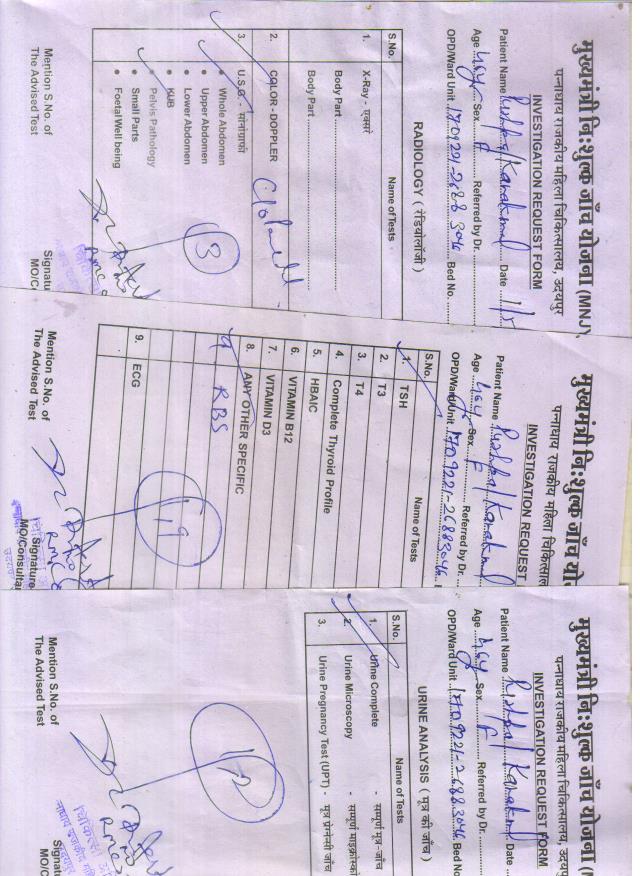 मुख्यमंत्री नि:शुल्क जाँच योजना (MNJ
पन्नाधाय राजकीय महिला चिकित्सालय, उदयपुर
INVESTIGATION REQUEST FORM
Patient Name Pushpa/Kanakmal Date 1/5
Age 46y Sex F Referred by Dr.
OPD/Ward Unit 1709221-26883046 Bed No.
RADIOLOGY ( रेडियोलॉजी )
S.No. Name of Tests
1. X-Ray - एक्सरे
Body Part
Body Part
2. COLOR - DOPPLER
3. U.S.G - सोनोग्राफी
• Whole Abdomen
• Upper Abdomen
• Lower Abdomen
• KUB
• Pelvis Pathology
• Small Parts
• Foetal Well being
13
Mention S.No. of
The Advised Test
Signatu
MO/C
मुख्यमंत्री नि:शुल्क जाँच यो
पन्नाधाय राजकीय महिला चिकित्साल
INVESTIGATION REQUEST
Patient Name Pushpa/Kanakmal
Age 46y Sex F Referred by Dr.
OPD/Ward Unit 1709221-26883046
S.No. Name of Tests
1. TSH
2. T3
3. T4
4. Complete Thyroid Profile
5. HBAIC
6. VITAMIN B12
7. VITAMIN D3
8. ANY OTHER SPECIFIC
9 RBS
9. ECG
1,9
Mention S.No. of
The Advised Test
Signature
MO/Consulta
मुख्यमंत्री नि:शुल्क जाँच योजना (
पन्नाधाय राजकीय महिला चिकित्सालय, उदयपु
INVESTIGATION REQUEST FORM
Patient Name Pushpa/Kanakmal Date
Age 46y Sex F Referred by Dr.
OPD/Ward Unit 1709221-26883046 Bed No
URINE ANALYSIS ( मूत्र की जाँच )
S.No. Name of Tests
1. Urine Complete - सम्पूर्ण मूत्र-जाँच
2. Urine Microscopy - सम्पूर्ण माइक्रोस्को
3. Urine Pregnancy Test (UPT) - मूत्र प्रेगनेन्सी जाँच
Mention S.No. of
The Advised Test
Signat
MO/C